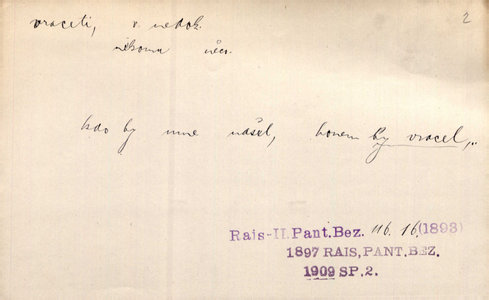 2
vraceti, v. nedok.
někomu něco.
kdo by mne našel, honem by vracel,..
Rais-II.Pant.Bez. 116. 16.(1893)
1897 RAIS,PANT.BEZ.
1909 SP.2.